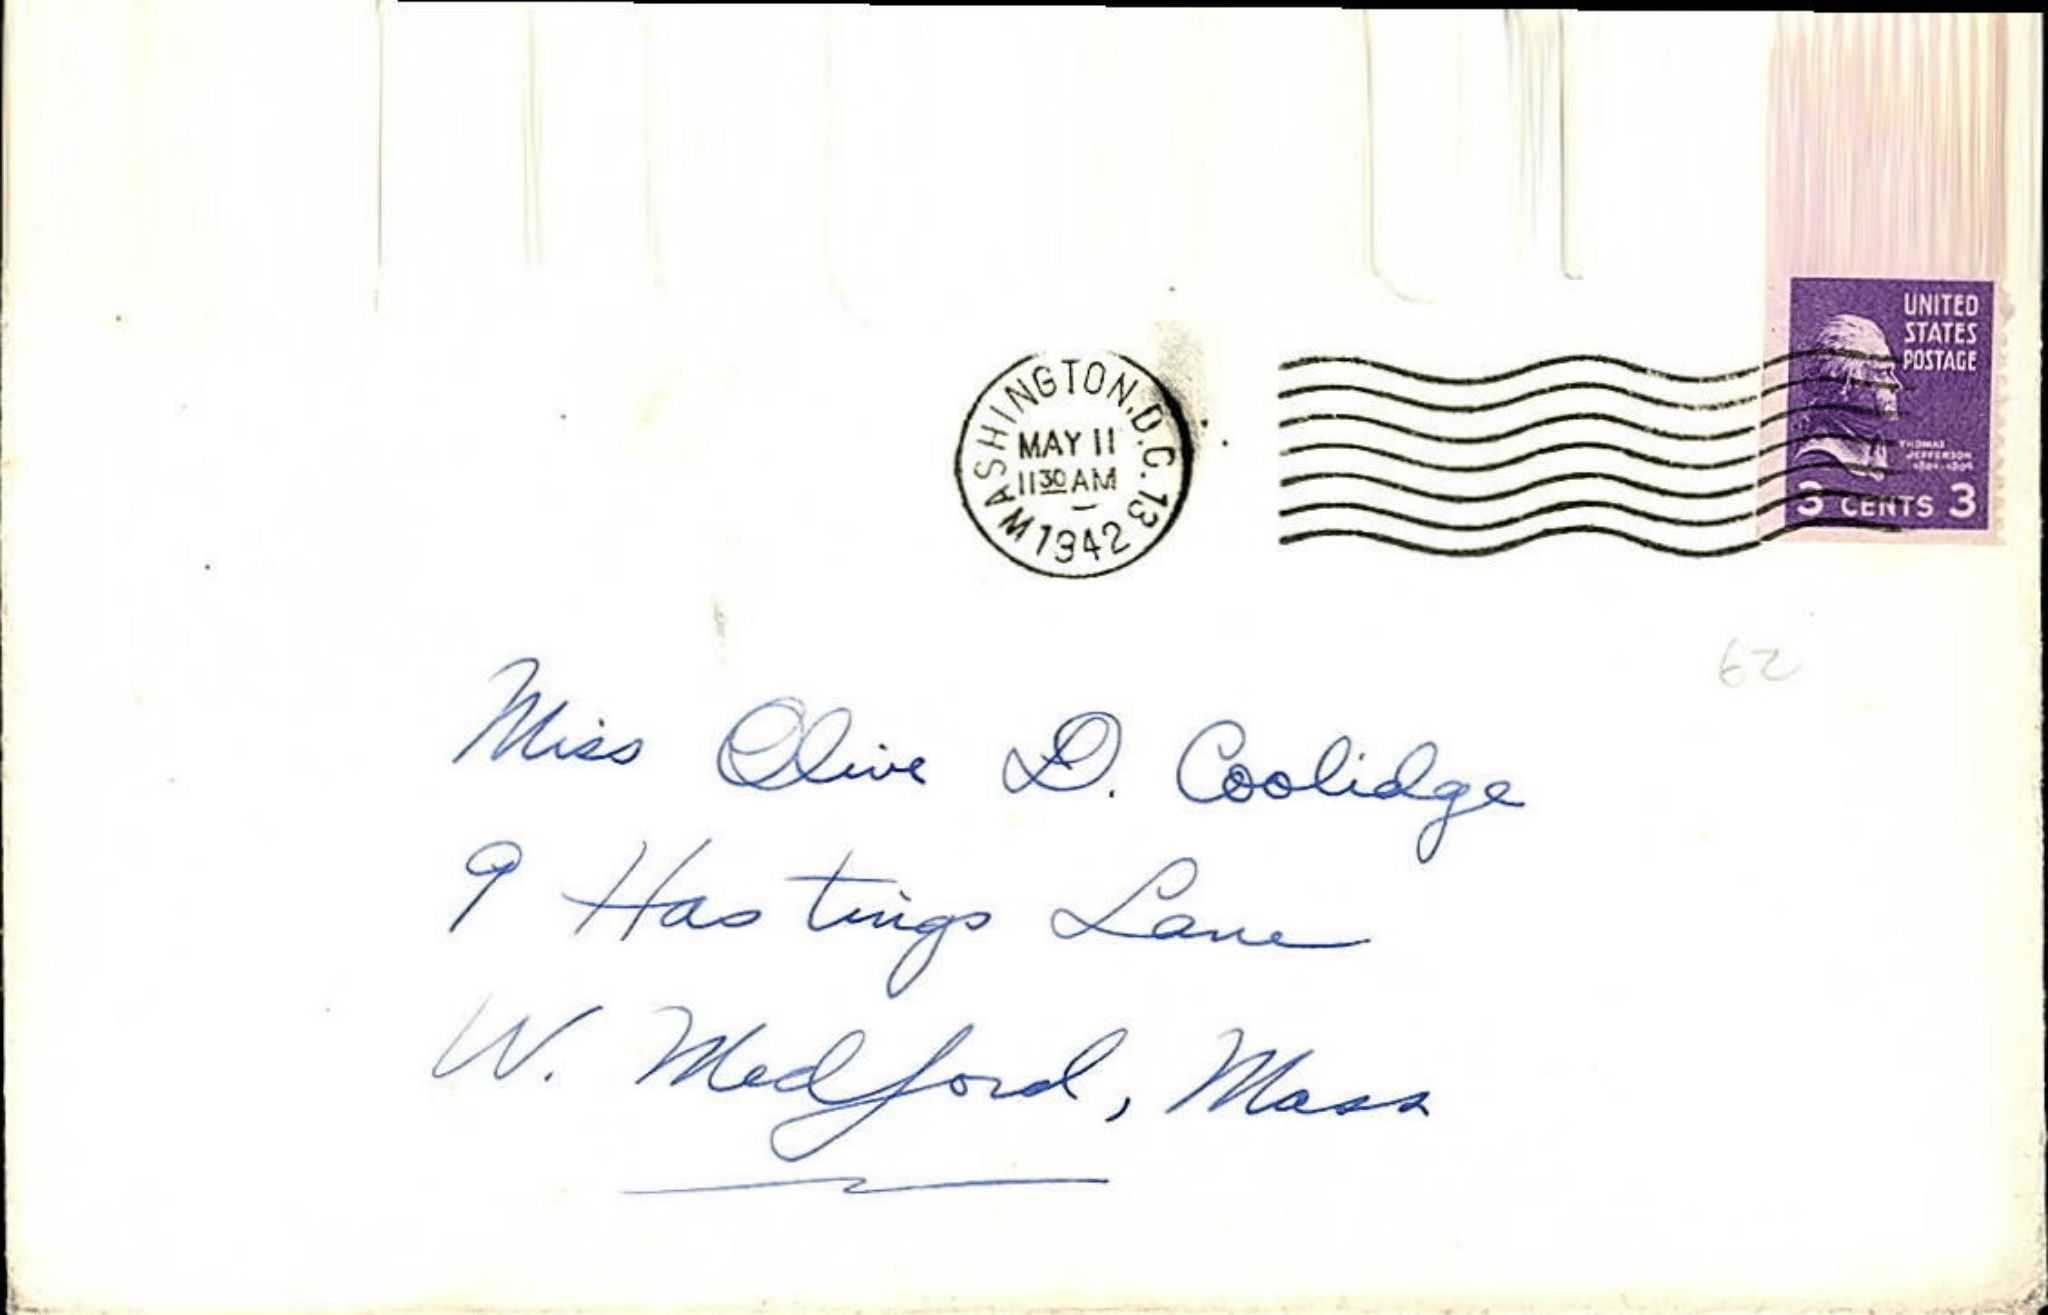 WASHINGTON, D.C. 13
MAY 11
11 30 AM
1942
UNITED
STATES
POSTAGE
THOMAS
JEFFERSON
1801-1809
3 CENTS 3
62
Miss Olive D. Coolidge
9 Hastings Lane
W. Medford, Mass